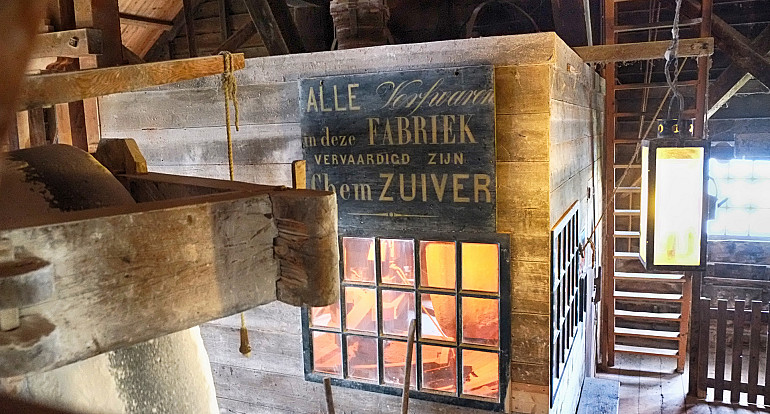 ALLE Verfwaren
in deze FABRIEK
VERVAARDIGD ZIJN
Chem ZUIVER